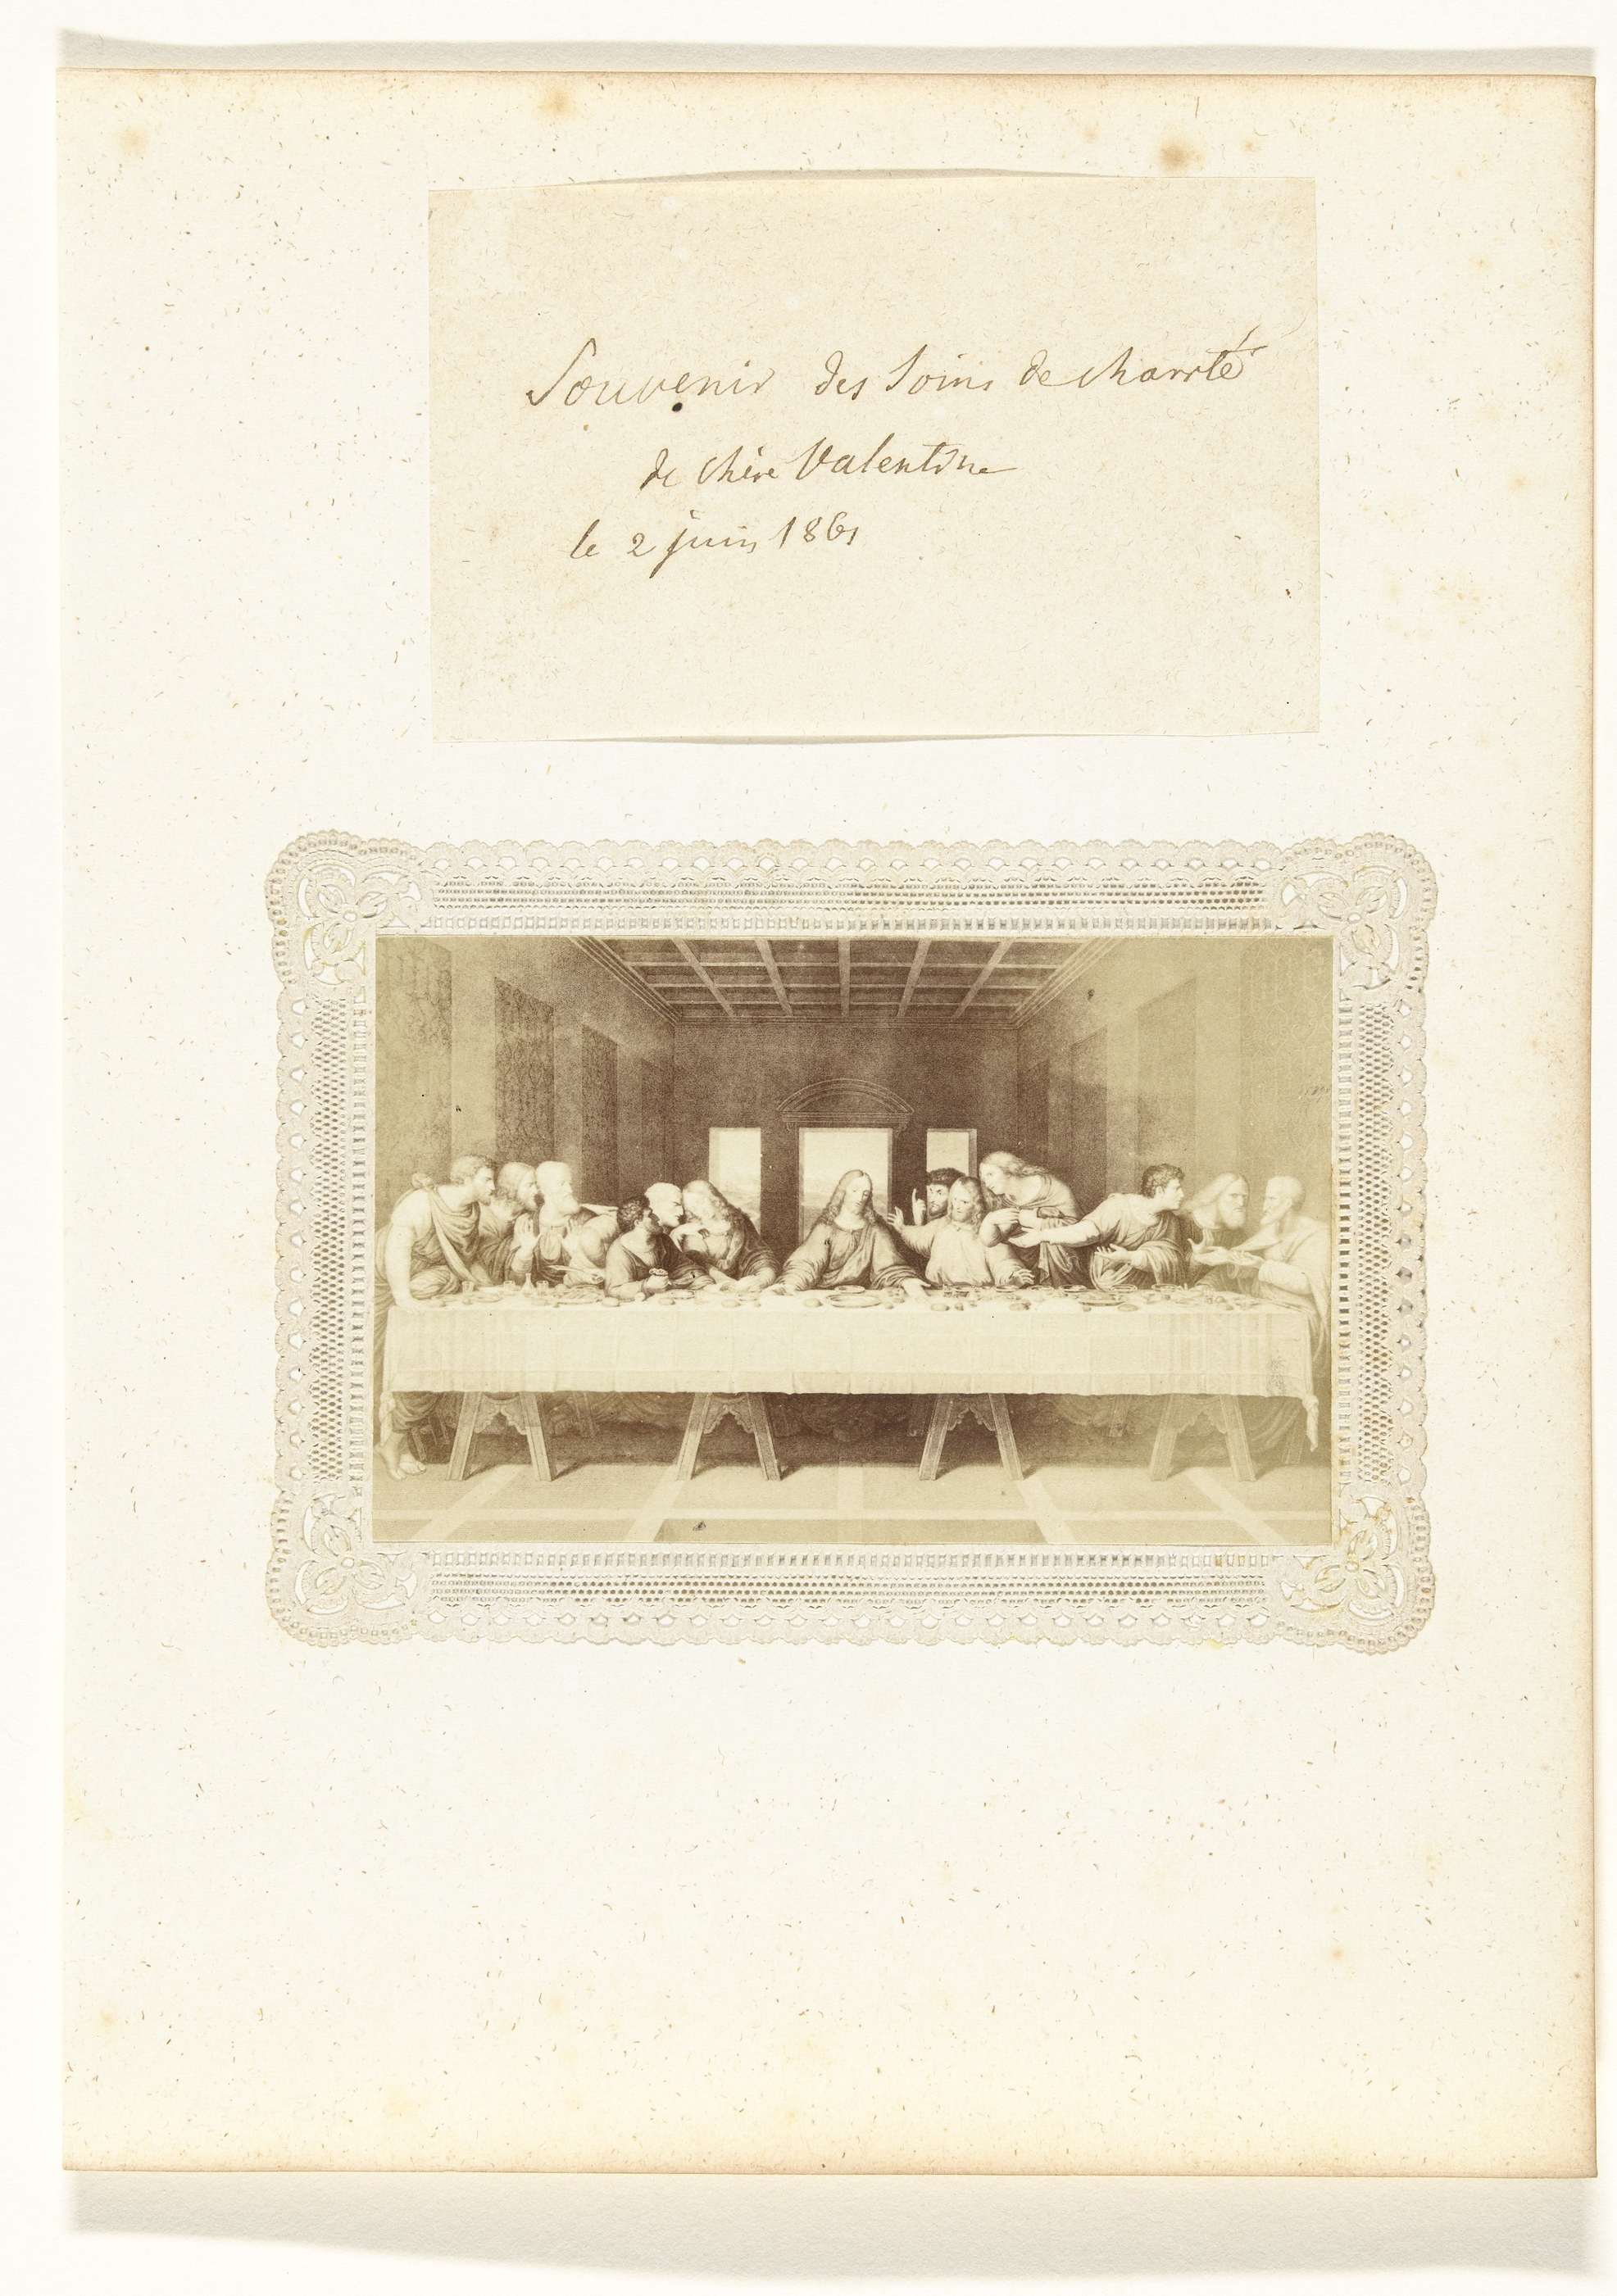 Souvenir des soins de charité
de chère Valentine
le 2 juin 1861